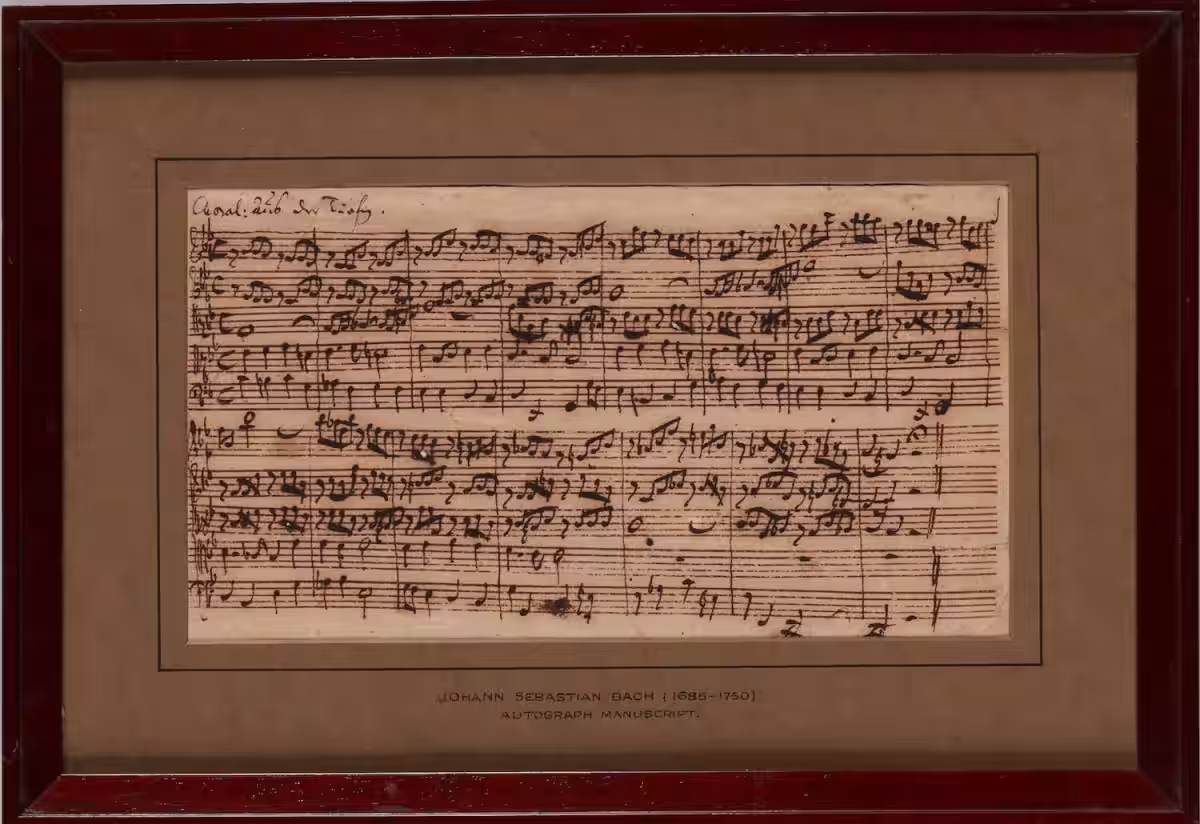 Choral: Aus der Tiefen.
JOHANN SEBASTIAN BACH (1685-1750)
AUTOGRAPH MANUSCRIPT.